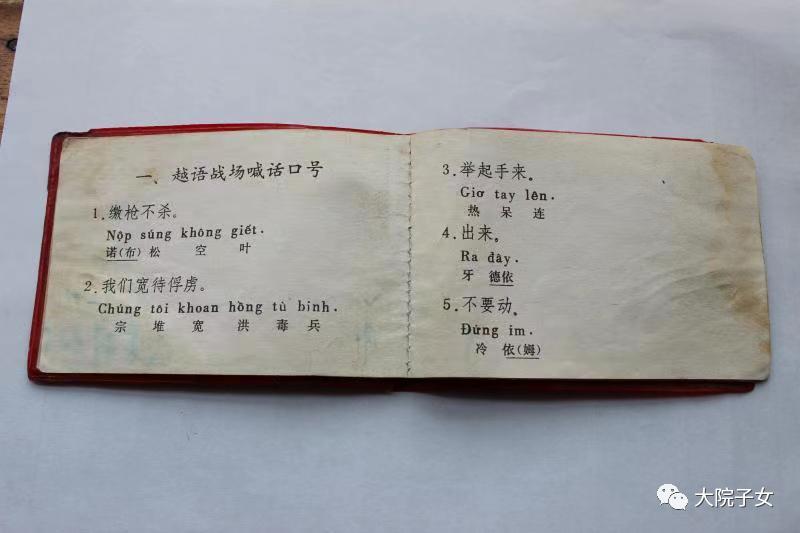 一、越语战场喊话口号
1.缴枪不杀。
Nộp súng không giết.
诺(布) 松 空 叶
2.我们宽待俘虏。
Chúng tôi khoan hồng tù binh.
宗 堆 宽 洪 毒 兵
3.举起手来。
Giơ tay lên.
热 呆 连
4.出来。
Ra đây.
牙 德依
5.不要动。
Đứng im.
冷 依(姆)
大院子女